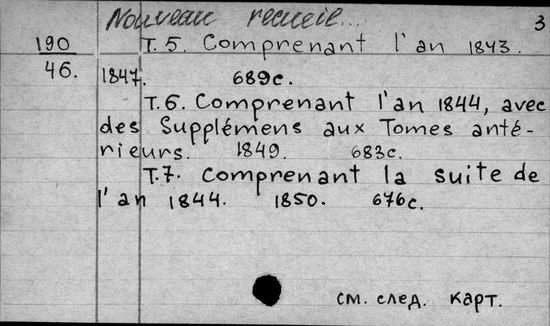 Nouveau recueil... 3
190 T.5. Comprenant l'an 1843.
46. 1847. 689c.
T.6. Comprenant l'an 1844, avec
des Supplémens aux Tomes anté-
rieurs. 1849. 683c.
T.7. Comprenant la suite de
l'an 1844. 1850. 676c.
см. след. карт.